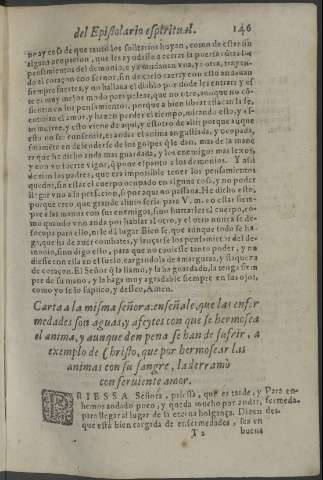 del Epistolario espiritual. 146
no ay cosa de que tanto los solitarios huyan, como de estar sin
alguna ocupacion, que les ayudasse a cerrar la puerta
pensamientos del demonio, e ya andauan vna, ya otra, trayen-
do el coraçon con señor, sin dexarlo caer y con esto andauan
siempre fuertes, y no hallaua el diablo por donde les entrar: y es-
te es muy mejor modo para pelear, que no otro, aunque no
en los pensamientos, porque a bien librar
entibia el amor, y hazen perder el tiempo, mirando esto, y
y esto viene de aqui, y esotro de alli: porque aunque
esto no sea consentir, es andar el anima angustiada, y ocupada,
en defenderse de los golpes que le dan, mas de la mane
ra que he dicho anda mas guardada, y los enemigos mas lexos,
y con vn fuerte vigor, que pone espanto a los demonios. Y assi
dezian los padres, que era impossible tener los pensamientos
quedos, sin estar el cuerpo ocupado en alguna cosa, y no poder
llegar vno a la perfecion, si por aqui no passaua. He dicho esto,
porque creo que grande aliuio seria para V. m. no estar siem-
pre a las manos con sus enemigos, sino hurtarles el cuerpo, co-
mo quando vno anda por hablar a otro, y el otro nunca se de-
socupa para ello, ni le da lugar. Bien se, que aunque todo se ha-
ga, que ha de auer combates, y lançarse los pensamientos del de-
monio, sino digolo, para que no tuuiesse tanto poder, y no
diesse con ella en el suelo, cargandola de amarguras, y flaqueza
de coraçon. El Señor que la llamò, y la ha guardado, la tenga siem
pre de su mano, y la haga muy agradable siempre en sus ojos,
como yo se lo suplico, y desseo, Amen.
Carta a la misma señora: enseñale, que las enfer
medades son aguas, y afeytes con que se hermosea
el anima, y aunque den pena se han de sufrir, a
exemplo de Christo, que por hermosear las
animas con su sangre, la derramò
con feruiente amor.
PRIESSA Señora, priessa, que es tarde, y Para en-
hemos andado poco, y queda mucho por andar, fermeda-
para llegar al lugar de la eterna holgança. Dizen des.
que està bien cargada de enfermedades, sea en
T 2 buena